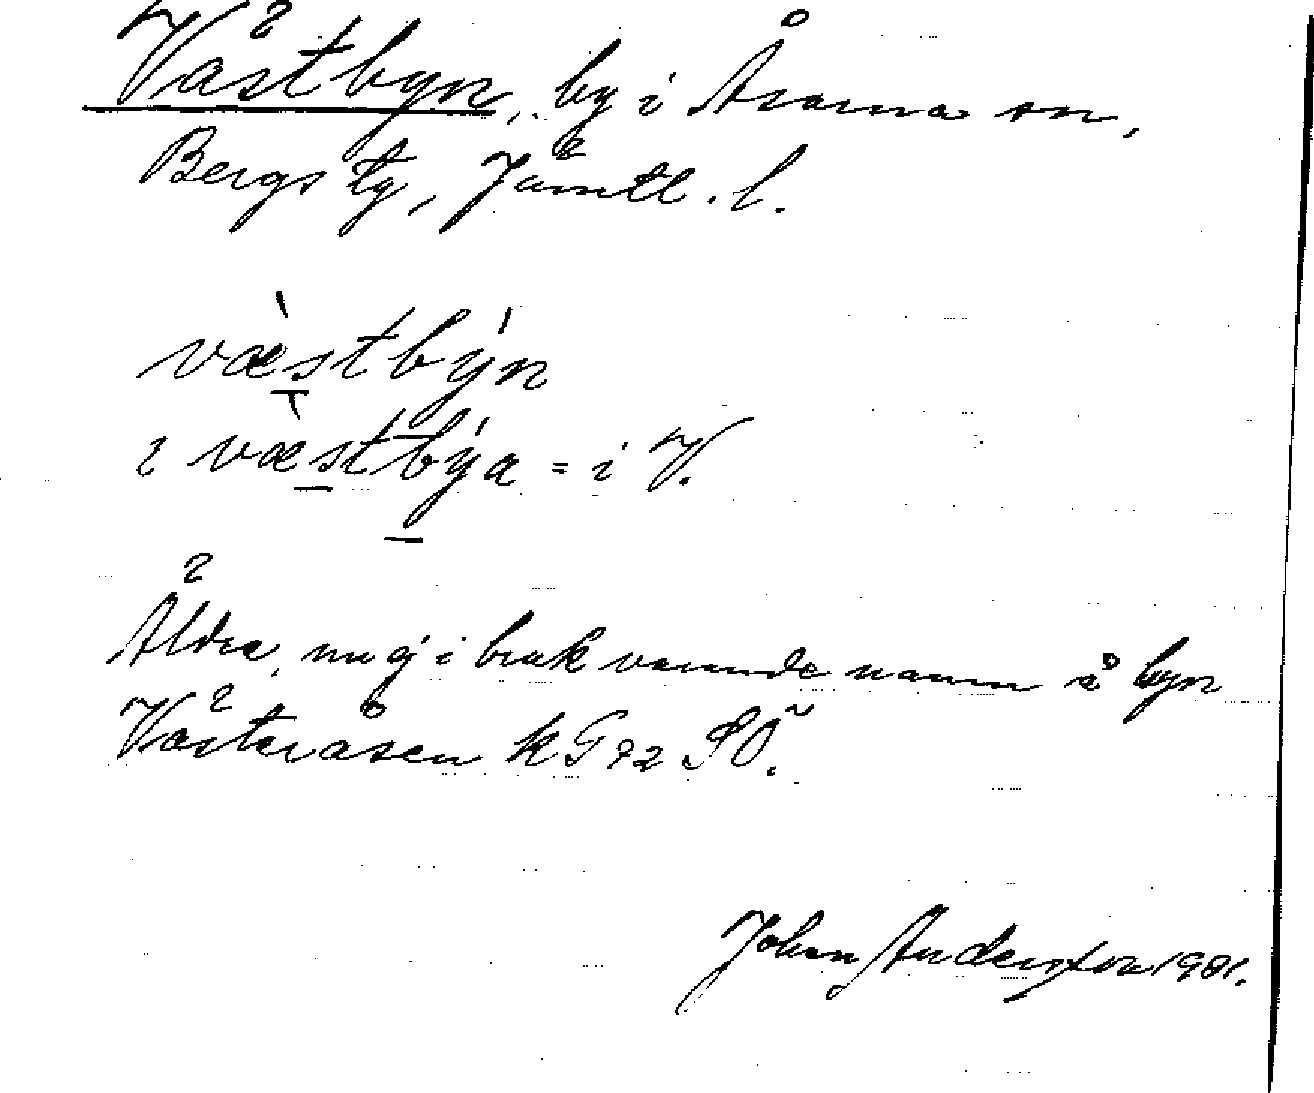 Västbyn, by i Åsarna sn,
Bergs tg, Jämtl. l.
væ̀stbýn
ɩ væ̀stbýa = i V.
Äldre, nu ej i bruk varande namn å byn
Västeråsen kG92 SÖ.
Johan Andersson 1901.